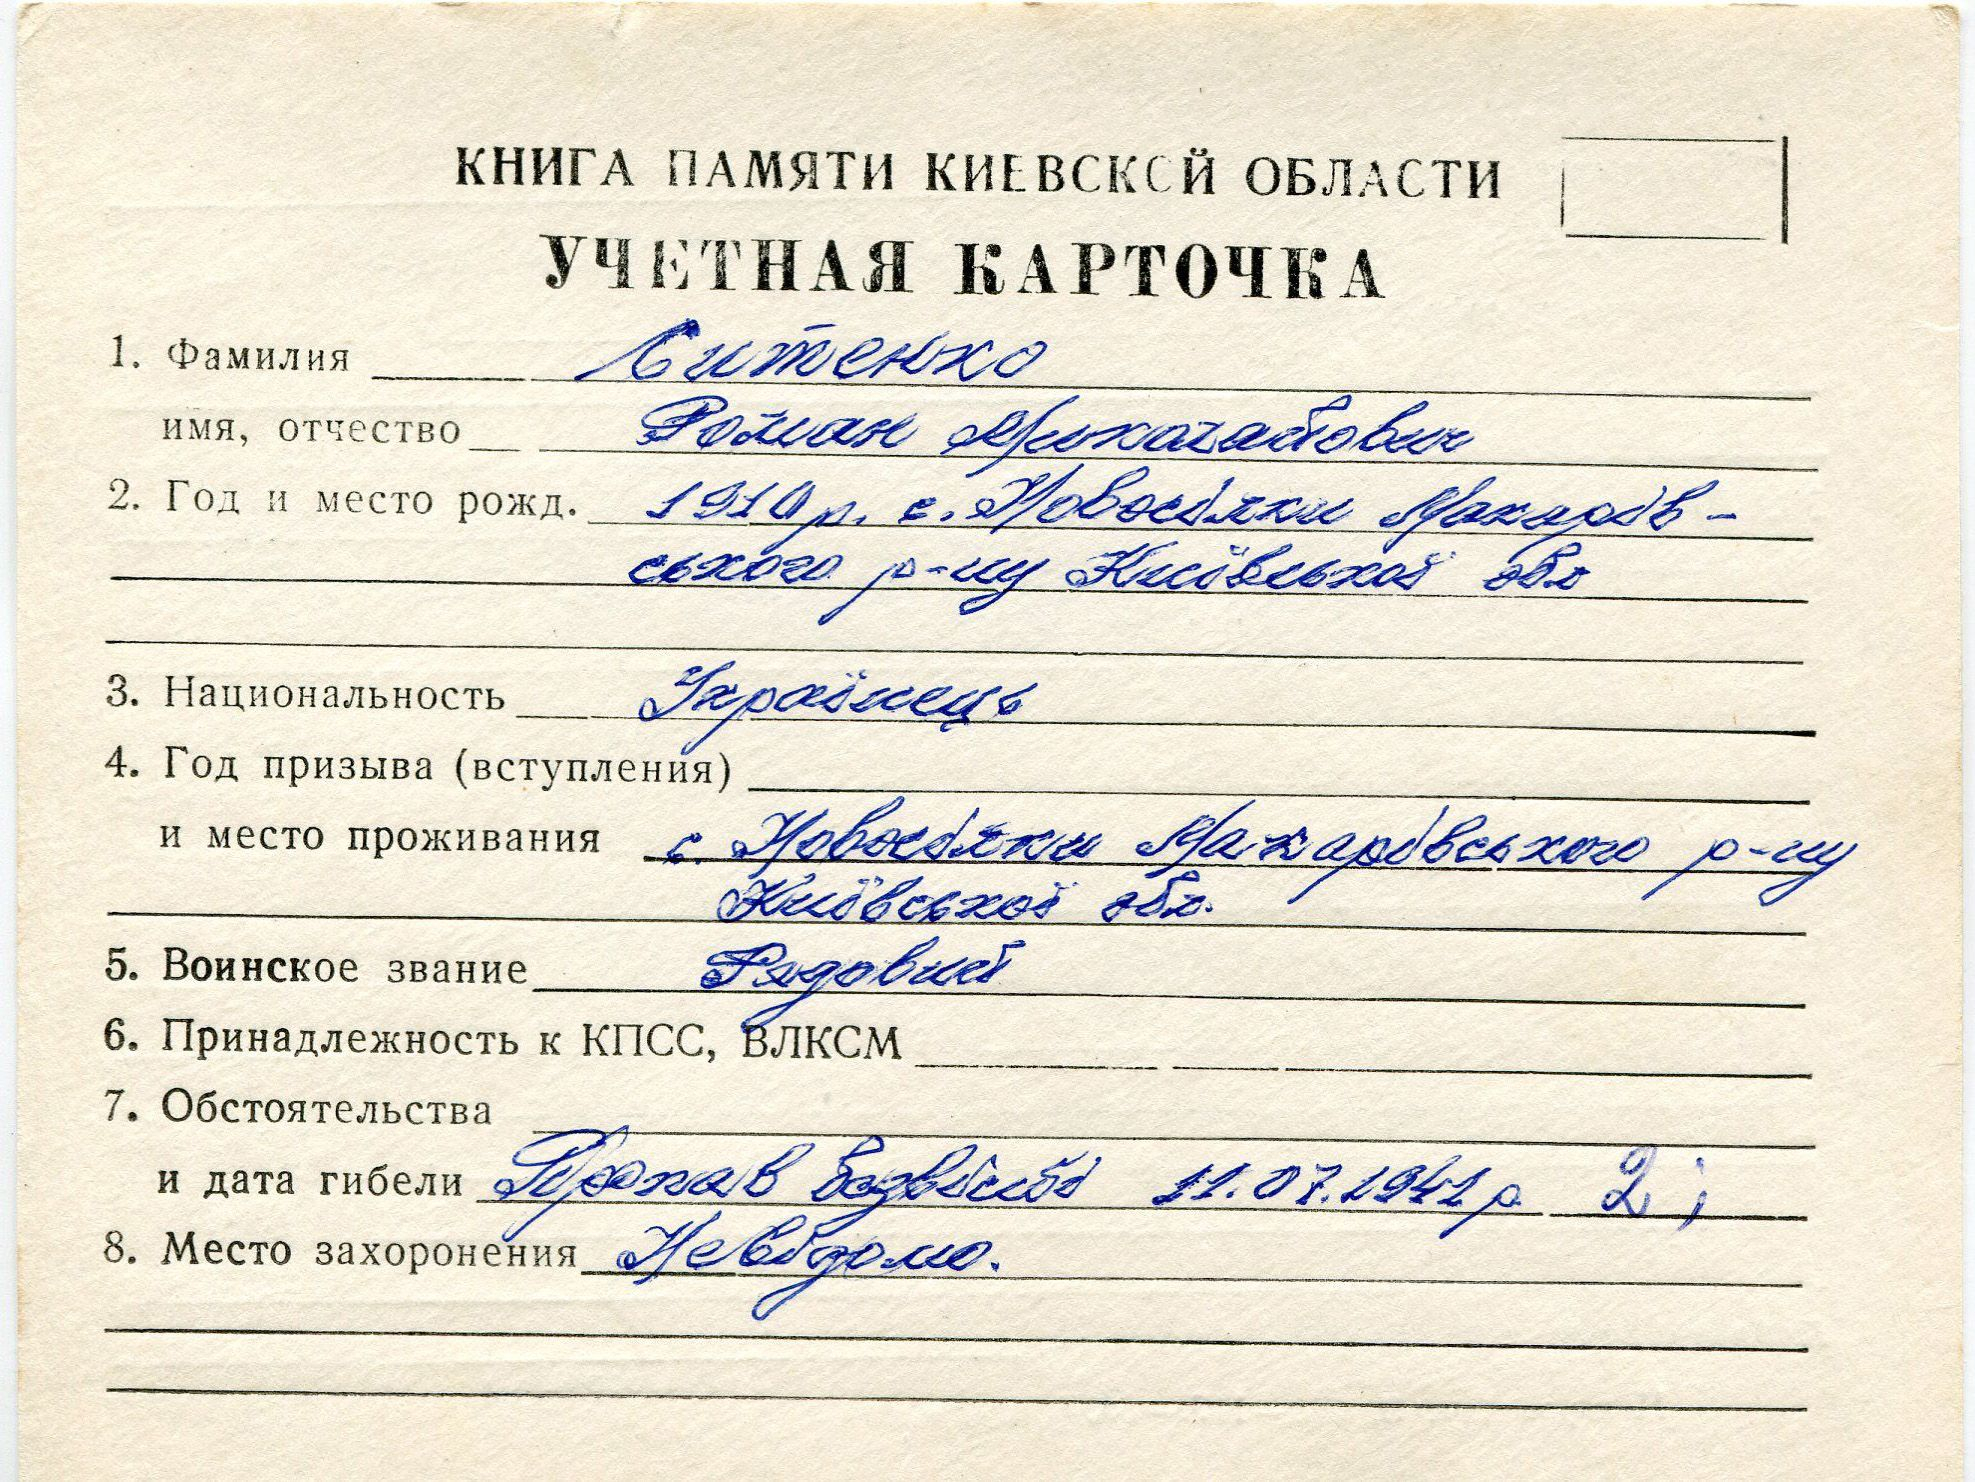 КНИГА ПАМЯТИ КИЕВСКОЙ ОБЛАСТИ
УЧЕТНАЯ КАРТОЧКА
1. Фамилия Ситенко
имя, отчество Роман Михайлович
2. Год и место рожд. 1910 р. с. Новосілки Макарів-
ського р-ну Київської обл
3. Национальность Українець
4. Год призыва (вступления)
и место проживания с. Новосілки Макарівського р-ну
Київської обл.
5. Воинское звание Рядовий
6. Принадлежность к КПСС, ВЛКСМ
7. Обстоятельства
и дата гибели Пропав безвісті 11.07.1941 р 2;
8. Место захоронения Невідомо.